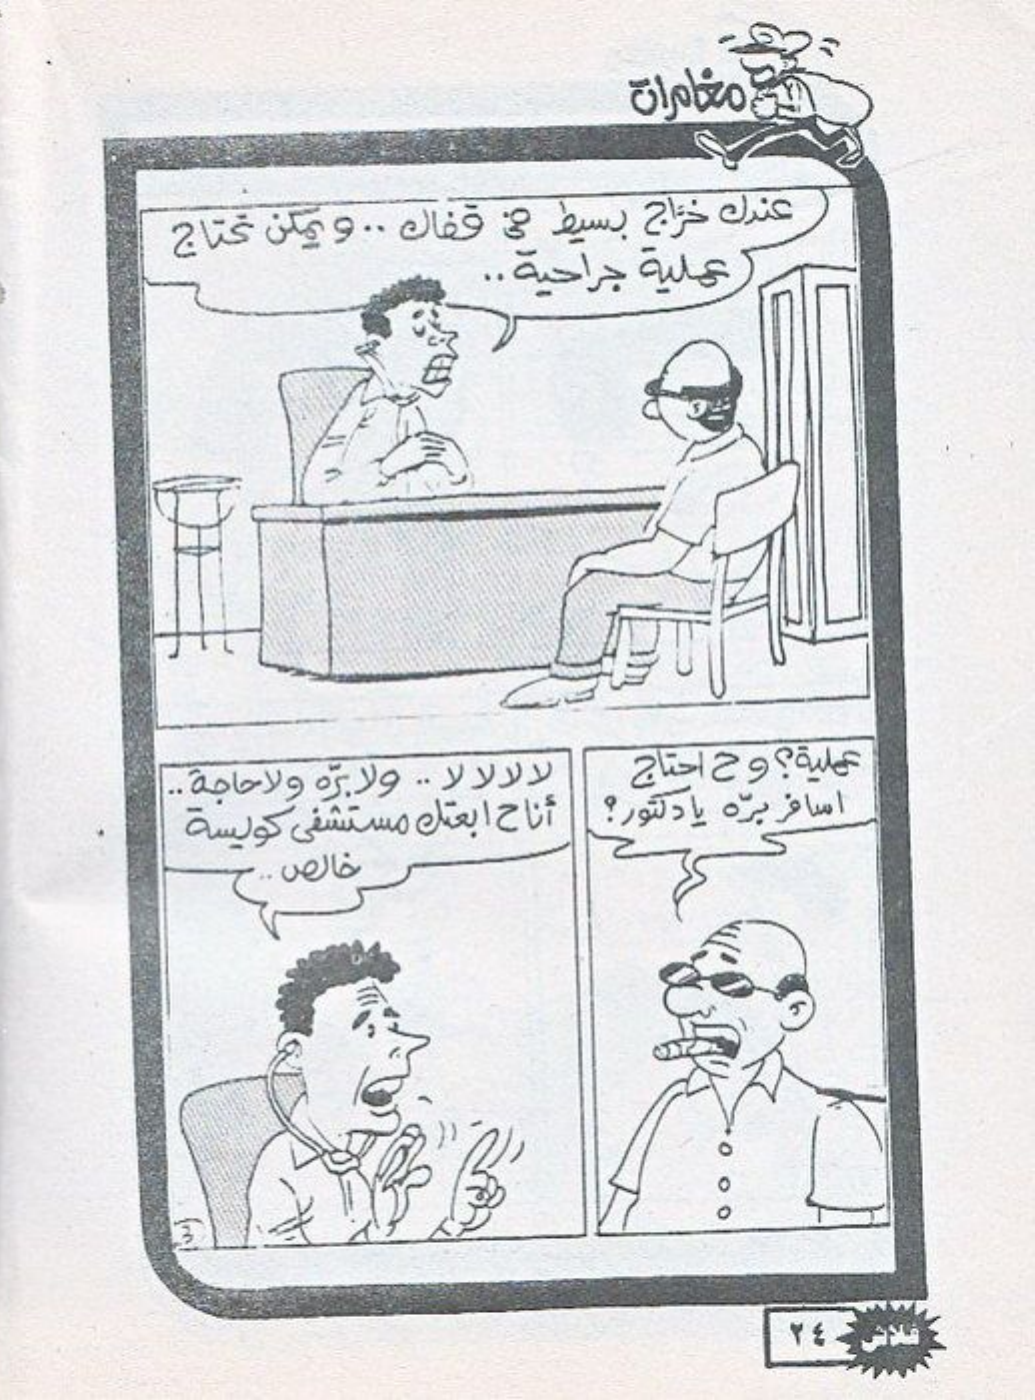 مغامرات
عندك خرّاج بسيط في قفاك .. و يمكن تحتاج
عملية جراحية ..
عملية؟ و ح احتاج
اسافر برّه يا دكتور؟
لا لا لا لا .. ولا برّه ولا حاجة ..
أنا ح ابعتك مستشفى كويسة
خالص ..
٢٤
فلاش